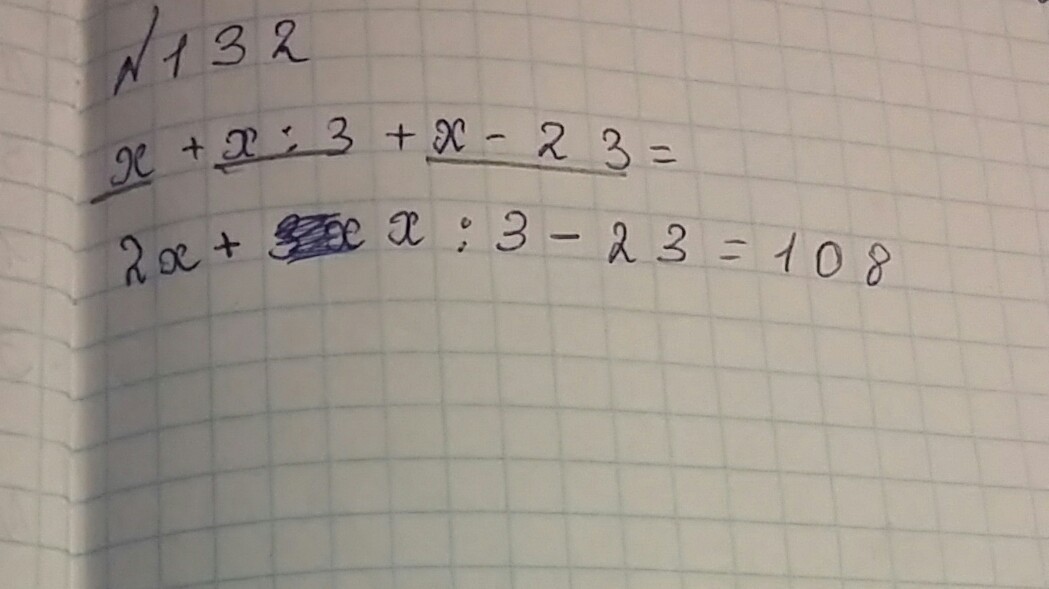 №132
x + x : 3 + x - 23 =
2x + x : 3 - 23 = 108